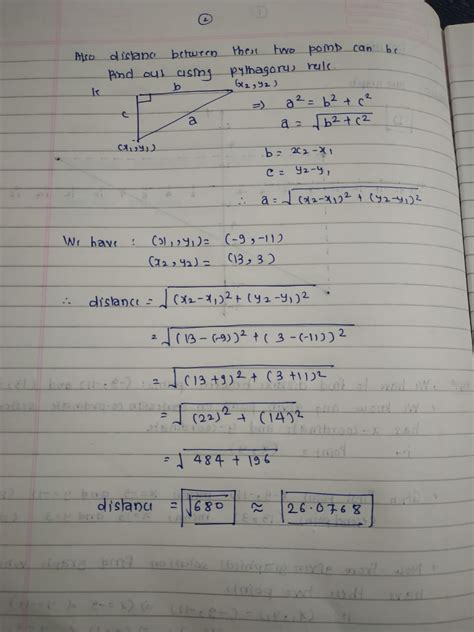 2
Also distance between these two points can be
find out using pythagorus rule.
ie
b
(x2, y2)
c
a
(x1, y1)
⇒ a² = b² + c²
a = √(b² + c²)
b = x2 - x1
c = y2 - y1
∴ a = √((x2-x1)² + (y2-y1)²)
We have : (x1, y1) = (-9, -11)
(x2, y2) = (13, 3)
∴ distance = √((x2-x1)² + (y2-y1)²)
= √((13-(-9))² + (3-(-11))²)
= √((13+9)² + (3+11)²)
= √((22)² + (14)²)
= √(484 + 196)
distance = √680 ≈ 26.0768